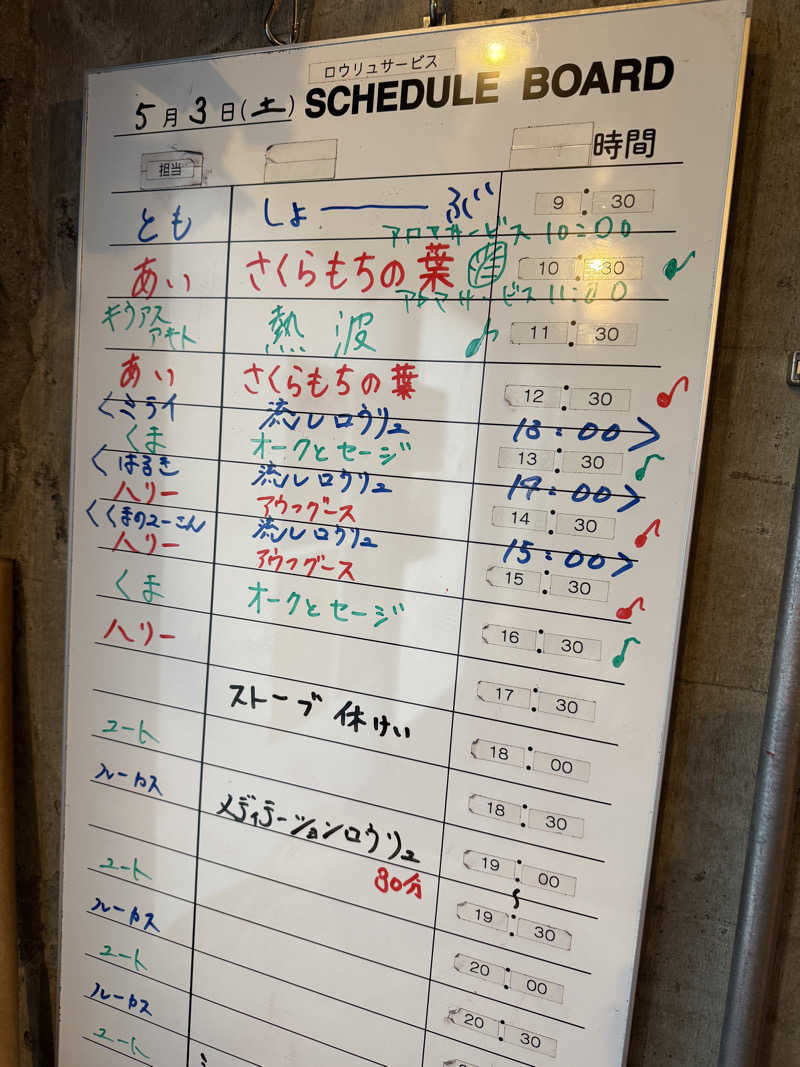 ロウリュサービス
5月3日(土) SCHEDULE BOARD
担当 時間
とも しょーーーぶ 9:30
アロマサービス 10:00
あい さくらもちの葉 10:30
アロマサービス 11:00
キウアス アキト 熱波 11:30
あい さくらもちの葉 12:30
くミライ 流しロウリュ 13:00>
くま オークとセージ 13:30
くはるき 流しロウリュ 14:00>
ハリー アウフグース 14:30
くくまのユーこん 流しロウリュ 15:00>
ハリー アウフグース 15:30
くま オークとセージ 16:30
ハリー 17:30
ストーブ休けい 18:00
ユート 18:30
ルーカス 19:00
メディテーションロウリュ 30分 〜 19:30
ユート 20:00
ルーカス 20:30
ユート
ルーカス
ユート